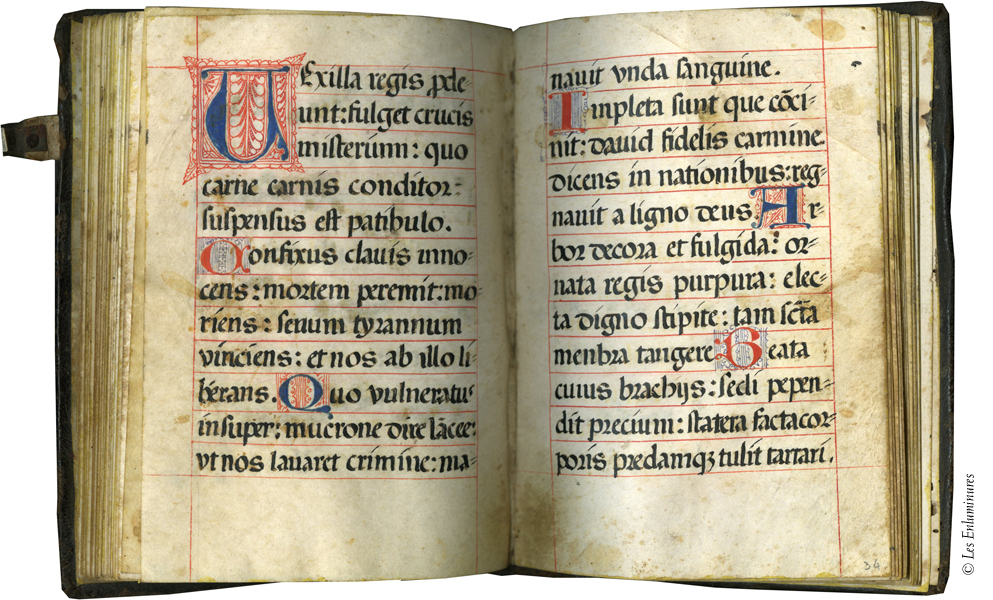 UExilla regis ꝓde
unt:fulget crucis
misterium: quo
carne carnis conditor:
suspensus est patibulo.
Confixus clauis inno-
cens: mortem peremit: mo-
riens: seuum tyrannum
vinciens: et nos ab illo li-
berans. Quo vulneratus
insuper: mucrone dire lãcee:
vt nos lauaret crimine: ma-
nauit vnda sanguine.
Impleta sunt que cõci-
nit: dauid fidelis carmine.
dicens in nationibus: reg-
nauit a ligno deus. Ar-
bor decora et fulgida: or-
nata regis purpura: elec-
ta digno stipite: tam scťa
menbra tangere. Beata
cuius brachijs: sedi pepen-
dit precium: statera facta cor-
poris predamqꝫ tulit tartari.
34
© Les Enluminures